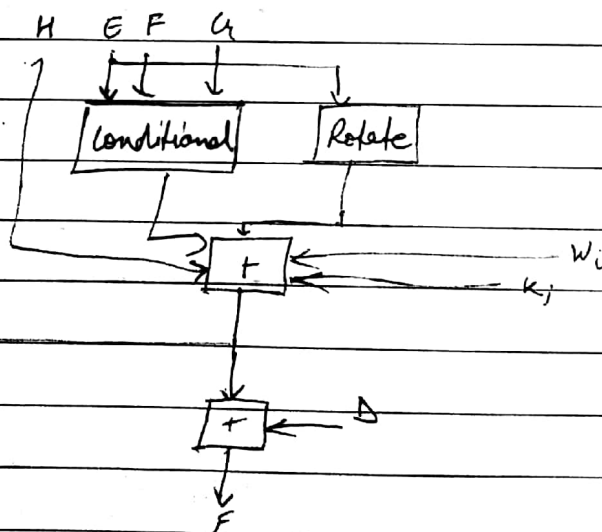 H E F G
Conditional Rotate
+ Wi
Kj
+ D
F